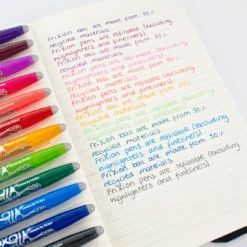 FriXion ball are made from 50%
recycled materials
FriXion pens are refillable (excluding
highlighters and fineliners)
FriXion ball are made from 50%
recycled materials
FriXion pens are refillable (excluding
highlighters and fineliners)
FriXion ball are made from 50%
recycled materials
FriXion pens are refillable (excluding
highlighters and fineliners)
FriXion ball are made from 50%
recycled materials
FriXion pens are refillable (excluding
highlighters and fineliners)
FriXion ball are made from 50%
recycled materials
FriXion pens are refillable (excluding
highlighters and fineliners)